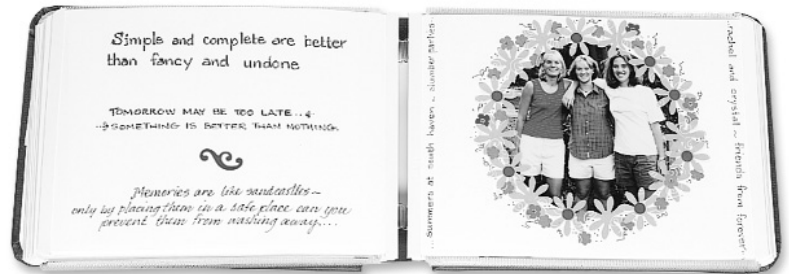 Simple and complete are better
than fancy and undone
TOMORROW MAY BE TOO LATE...
SOMETHING IS BETTER THAN NOTHING.
Memories are like sandcastles~
only by placing them in a safe place can you
prevent them from washing away....
...summers at south haven ~ slumber parties...
rachel and crystal ~ friends from forever...